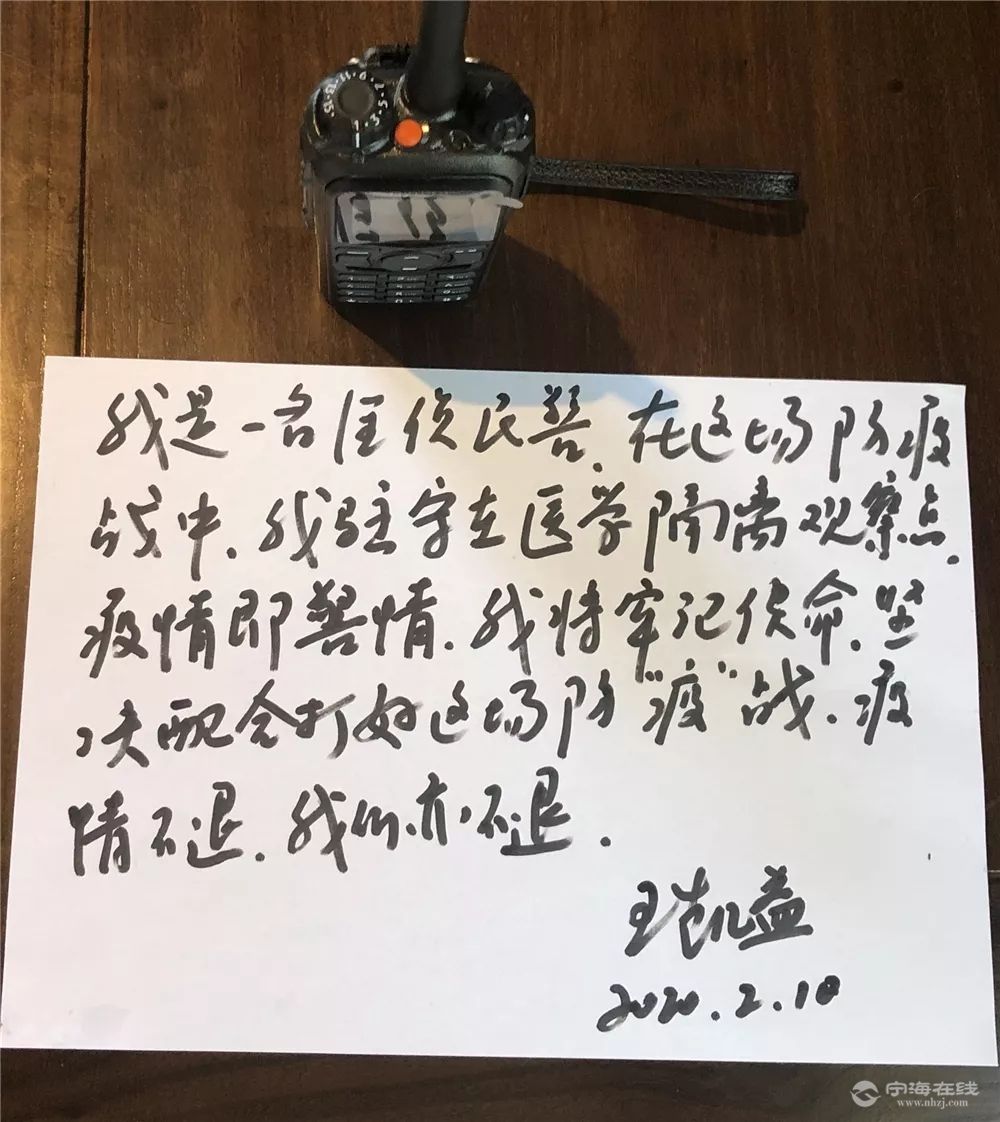 我是一名经侦民警、在这场防疫
战中、我驻守在医学隔离观察点、
疫情即警情、我将牢记使命、坚
决配合打好这场防"疫"战、疫
情不退、我们亦不退.
王凯益
2020.2.10
宁海在线
www.nhzj.com